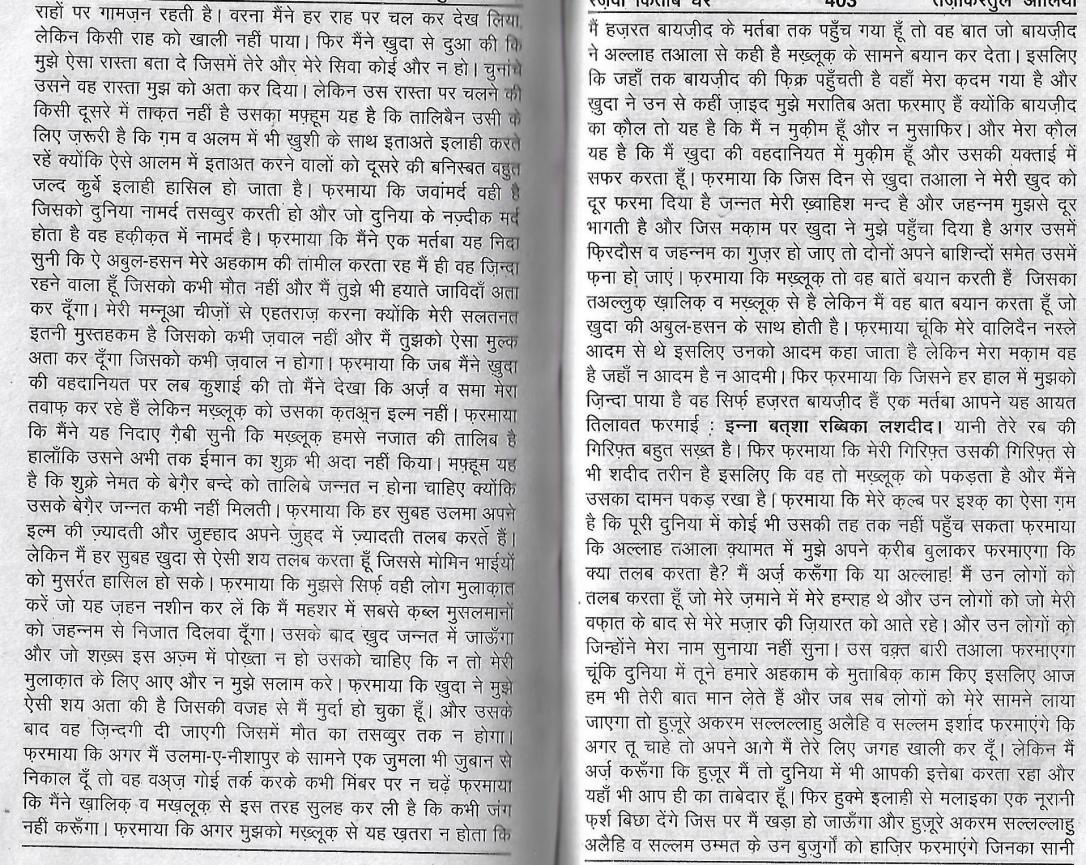 राहों पर गामज़न रहती है। वरना मैंने हर राह पर चल कर देख लिया
लेकिन किसी राह को खाली नहीं पाया। फिर मैंने ख़ुदा से दुआ की कि
मुझे ऐसा रास्ता बता दे जिसमें तेरे और मेरे सिवा कोई और न हो। चुनांचे
उसने वह रास्ता मुझ को अता कर दिया। लेकिन उस रास्ता पर चलने की
किसी दूसरे में ताक़त नहीं है उसका मफ़्हूम यह है कि तालिबैन उसी के
लिए ज़रूरी है कि ग़म व अलम में भी खुशी के साथ इताअते इलाही करते
रहें क्योंकि ऐसे आलम में इताअत करने वालों को दूसरे की बनिस्बत बहुत
जल्द कुर्बे इलाही हासिल हो जाता है। फ़रमाया कि जवांमर्द वही है
जिसको दुनिया नामर्द तसव्वुर करती हो और जो दुनिया के नज़्दीक मर्द
होता है वह हक़ीक़त में नामर्द है। फ़रमाया कि मैंने एक मर्तबा यह निदा
सुनी कि ऐ अबुल-हसन मेरे अहकाम की तांमील करता रह मैं ही वह ज़िन्दा
रहने वाला हूँ जिसको कभी मौत नहीं और मैं तुझे भी हयाते जाविदाँ अता
कर दूँगा। मेरी मम्नूआ चीज़ों से एहतराज़ करना क्योंकि मेरी सलतनत
इतनी मुस्तहकम है जिसको कभी ज़वाल नहीं और मैं तुझको ऐसा मुल्क
अता कर दूँगा जिसको कभी ज़वाल न होगा। फ़रमाया कि जब मैंने ख़ुदा
की वहदानियत पर लब कुशाई की तो मैंने देखा कि अर्ज़ व समा मेरा
तवाफ़ कर रहे हैं लेकिन मख़्लूक़ को उसका क़तअ़न इल्म नहीं। फ़रमाया
कि मैंने यह निदाए ग़ैबी सुनी कि मख़्लूक़ हमसे नजात की तालिब है
हालाँकि उसने अभी तक ईमान का शुक्र भी अदा नहीं किया। मफ़्हूम यह
है कि शुक्रे नेमत के बेग़ैर बन्दे को तालिबे जन्नत न होना चाहिए क्योंकि
उसके बेग़ैर जन्नत कभी नहीं मिलती। फ़रमाया कि हर सुबह उलमा अपने
इल्म की ज़्यादती और जुह्हाद अपने ज़ुहद में ज़्यादती तलब करते हैं।
लेकिन मैं हर सुबह ख़ुदा से ऐसी शय तलब करता हूँ जिससे मोमिन भाईयों
को मुसर्रत हासिल हो सके। फ़रमाया कि मुझसे सिर्फ़ वही लोग मुलाक़ात
करें जो यह ज़हन नशीन कर लें कि मैं महशर में सबसे क़ब्ल मुसलमानों
को जहन्नम से निजात दिलवा दूँगा। उसके बाद ख़ुद जन्नत में जाऊँगा
और जो शख़्स इस अज़्म में पोख़्ता न हो उसको चाहिए कि न तो मेरी
मुलाक़ात के लिए आए और न मुझे सलाम करे। फ़रमाया कि ख़ुदा ने मुझे
ऐसी शय अता की है जिसकी वजह से मैं मुर्दा हो चुका हूँ। और उसके
बाद वह ज़िन्दगी दी जाएगी जिसमें मौत का तसव्वुर तक न होगा।
फ़रमाया कि अगर मैं उलमा-ए-नीशापुर के सामने एक जुमला भी ज़ुबान से
निकाल दूँ तो वह वअ़ज़ गोई तर्क करके कभी मिंबर पर न चढ़ें फ़रमाया
कि मैंने ख़ालिक़ व मख़लूक़ से इस तरह सुलह कर ली है कि कभी जंग
नहीं करूँगा। फ़रमाया कि अगर मुझको मख़्लूक़ से यह ख़तरा न होता कि
रज़वी किताब घर 403 तज़किरतुल औलिया
मैं हज़रत बायज़ीद के मर्तबा तक पहुँच गया हूँ तो वह बात जो बायज़ीद
ने अल्लाह तआला से कही है मख़्लूक़ के सामने बयान कर देता। इसलिए
कि जहाँ तक बायज़ीद की फ़िक्र पहुँचती है वहाँ मेरा क़दम गया है और
ख़ुदा ने उन से कहीं ज़ाइद मुझे मरातिब अता फ़रमाए हैं क्योंकि बायज़ीद
का क़ौल तो यह है कि मैं न मुक़ीम हूँ और न मुसाफ़िर। और मेरा क़ौल
यह है कि मैं ख़ुदा की वहदानियत में मुक़ीम हूँ और उसकी यक्ताई में
सफ़र करता हूँ। फ़रमाया कि जिस दिन से ख़ुदा तआला ने मेरी ख़ुद को
दूर फ़रमा दिया है जन्नत मेरी ख़्वाहिश मन्द है और जहन्नम मुझसे दूर
भागती है और जिस मक़ाम पर ख़ुदा ने मुझे पहुँचा दिया है अगर उसमें
फ़िरदौस व जहन्नम का गुज़र हो जाए तो दोनों अपने बाशिन्दों समेत उसमें
फ़ना हो जाएं। फ़रमाया कि मख़्लूक़ तो वह बातें बयान करती हैं जिसका
तअल्लुक़ ख़ालिक़ व मख़्लूक़ से है लेकिन मैं वह बात बयान करता हूँ जो
ख़ुदा की अबुल-हसन के साथ होती है। फ़रमाया चूंकि मेरे वालिदैन नस्ले
आदम से थे इसलिए उनको आदम कहा जाता है लेकिन मेरा मक़ाम वह
है जहाँ न आदम है न आदमी। फिर फ़रमाया कि जिसने हर हाल में मुझको
ज़िन्दा पाया है वह सिर्फ़ हज़रत बायज़ीद हैं एक मर्तबा आपने यह आयत
तिलावत फ़रमाई : इन्ना बत्शा रब्बिका लशदीद। यानी तेरे रब की
गिरिफ़्त बहुत सख़्त है। फिर फ़रमाया कि मेरी गिरिफ़्त उसकी गिरिफ़्त से
भी शदीद तरीन है इसलिए कि वह तो मख़्लूक़ को पकड़ता है और मैंने
उसका दामन पकड़ रखा है। फ़रमाया कि मेरे क़ल्ब पर इश्क़ का ऐसा ग़म
है कि पूरी दुनिया में कोई भी उसकी तह तक नहीं पहुँच सकता फ़रमाया
कि अल्लाह तआला क़्यामत में मुझे अपने क़रीब बुलाकर फ़रमाएगा कि
क्या तलब करता है? मैं अर्ज़ करूँगा कि या अल्लाह! मैं उन लोगों को
तलब करता हूँ जो मेरे ज़माने में मेरे हम्राह थे और उन लोगों को जो मेरी
वफ़ात के बाद से मेरे मज़ार की ज़ियारत को आते रहे। और उन लोगों को
जिन्होंने मेरा नाम सुनाया नहीं सुना। उस वक़्त बारी तआला फ़रमाएगा
चूंकि दुनिया में तूने हमारे अहकाम के मुताबिक़ काम किए इसलिए आज
हम भी तेरी बात मान लेते हैं और जब सब लोगों को मेरे सामने लाया
जाएगा तो हुज़ूरे अकरम सल्लल्लाहु अलैहि व सल्लम इर्शाद फ़रमाएंगे कि
अगर तू चाहे तो अपने आगे मैं तेरे लिए जगह खाली कर दूँ। लेकिन मैं
अर्ज़ करूँगा कि हुज़ूर मैं तो दुनिया में भी आपकी इत्तेबा करता रहा और
यहाँ भी आप ही का ताबेदार हूँ। फिर हुक्मे इलाही से मलाइका एक नूरानी
फ़र्श बिछा देंगे जिस पर मैं खड़ा हो जाऊँगा और हुज़ूरे अकरम सल्लल्लाहु
अलैहि व सल्लम उम्मत के उन बुज़ुर्गों को हाज़िर फरमाएंगे जिनका सानी